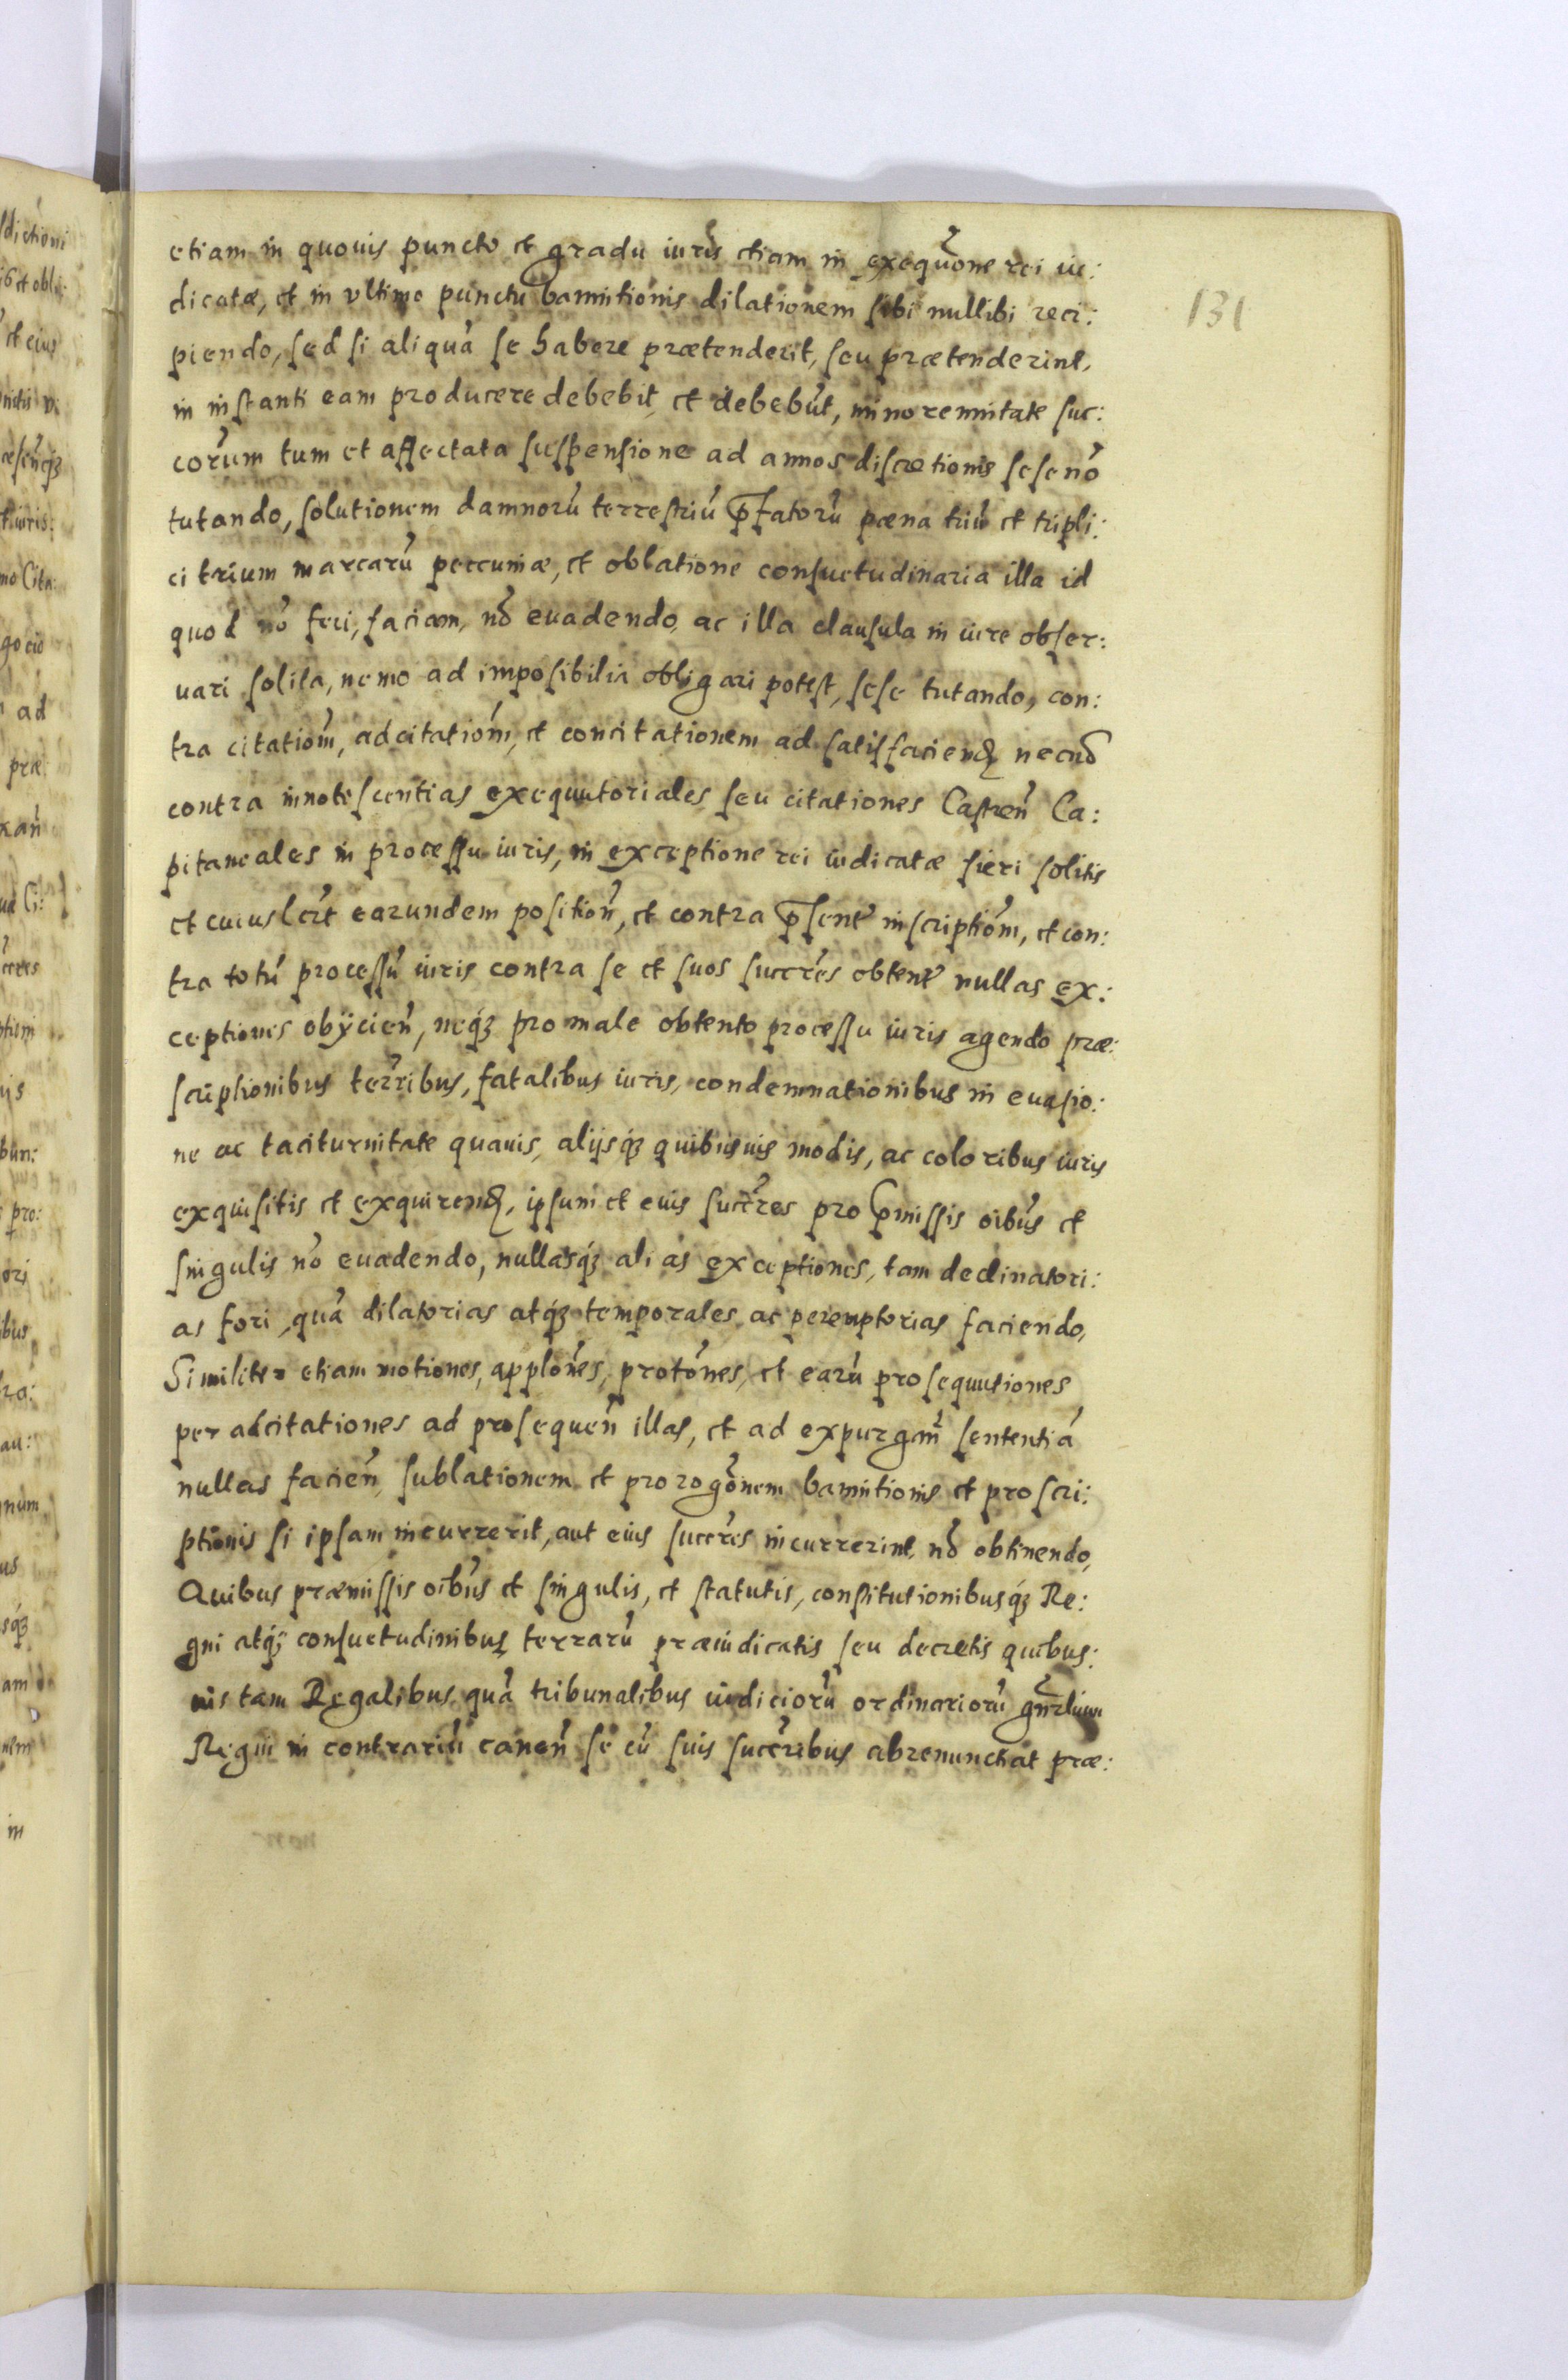 etiam in quovis puncto et gradu iuris etiam in exequũone rei iu:
dicatæ, et in vltimo punctu bannitionis dilationem sibi nullibi reci:
piendo, sed si aliquã se habere prætenderit, seu prætenderint,
in instanti eam producere debebit, et debebũt, minorennitate suc:
corũm tum et affectata suspensione ad annos discretionis sese nõ
tutando, solutionem damnorũ terrestriũ p̃fatorũ pæna triũ et tripli:
ci trium marcarũ peccuniæ, et oblatione consuetudinaria illa id
quod nõ feci, faciam, nõ euadendo, ac illa clausula in iure obser:
uari solita, nemo ad imposibilia obligari potest, sese tutando, con:
tra citatiom̃, adcitatiom̃, et concitationem ad satisfaciend̃ necnõ
contra innotescentias exequutoriales seu citationes Castren̄ Ca:
pitaneales in processu iuris, in exceptione rei iudicatæ fieri solitis
et cuiuslibt earundem position̄, et contra p̃sent̃ inscriptiom̃, et con:
tra totũ processũ iuris contra se et suos succr̃es obtent̃ nullas ex:
ceptiones obÿcien̄, neqꝫ pro male obtento processu iuris agendo præ:
scriptionibus terr̃ibus, fatalibus iuris, condemnationibus in euasio:
ne ac taciturnitate quauis, alijsqꝫ quibusuis modis, ac coloribus iuris
exquisitis et exquirend̃, ipsum et euis succr̃es pro p̃missis oĩbus et
singulis nõ euadendo, nullasqꝫ alias exceptiones, tam declinatori:
as fori, quã dilatorias atqꝫ temporales ac peremptorias faciendo,
Similiter etiam motiones, applõnes, protõnes, et earũ prosequutiones
per adcitationes ad prosequen̄ illas, et ad expurgan̄ sententiã
nullas facien̄, sublationem et prorogõnem bannitionis et proscri:
ptionis si ipsam incurrerit, aut eius succr̃es incurrerint, nõ obtinendo,
Quibus præmissis oĩbus et singulis, et statutis, constitutionibusqꝫ Re:
gni atqꝫ consuetudinibus terrarũ præiudicatis seu decretis quibus:
uis tam Regalibus quã tribunalibus iudiciorũ ordinariorũ gñrlium
Regni in contrariũ canen̄ se cũ suis succr̃ibus abrenunctiat præ:
131